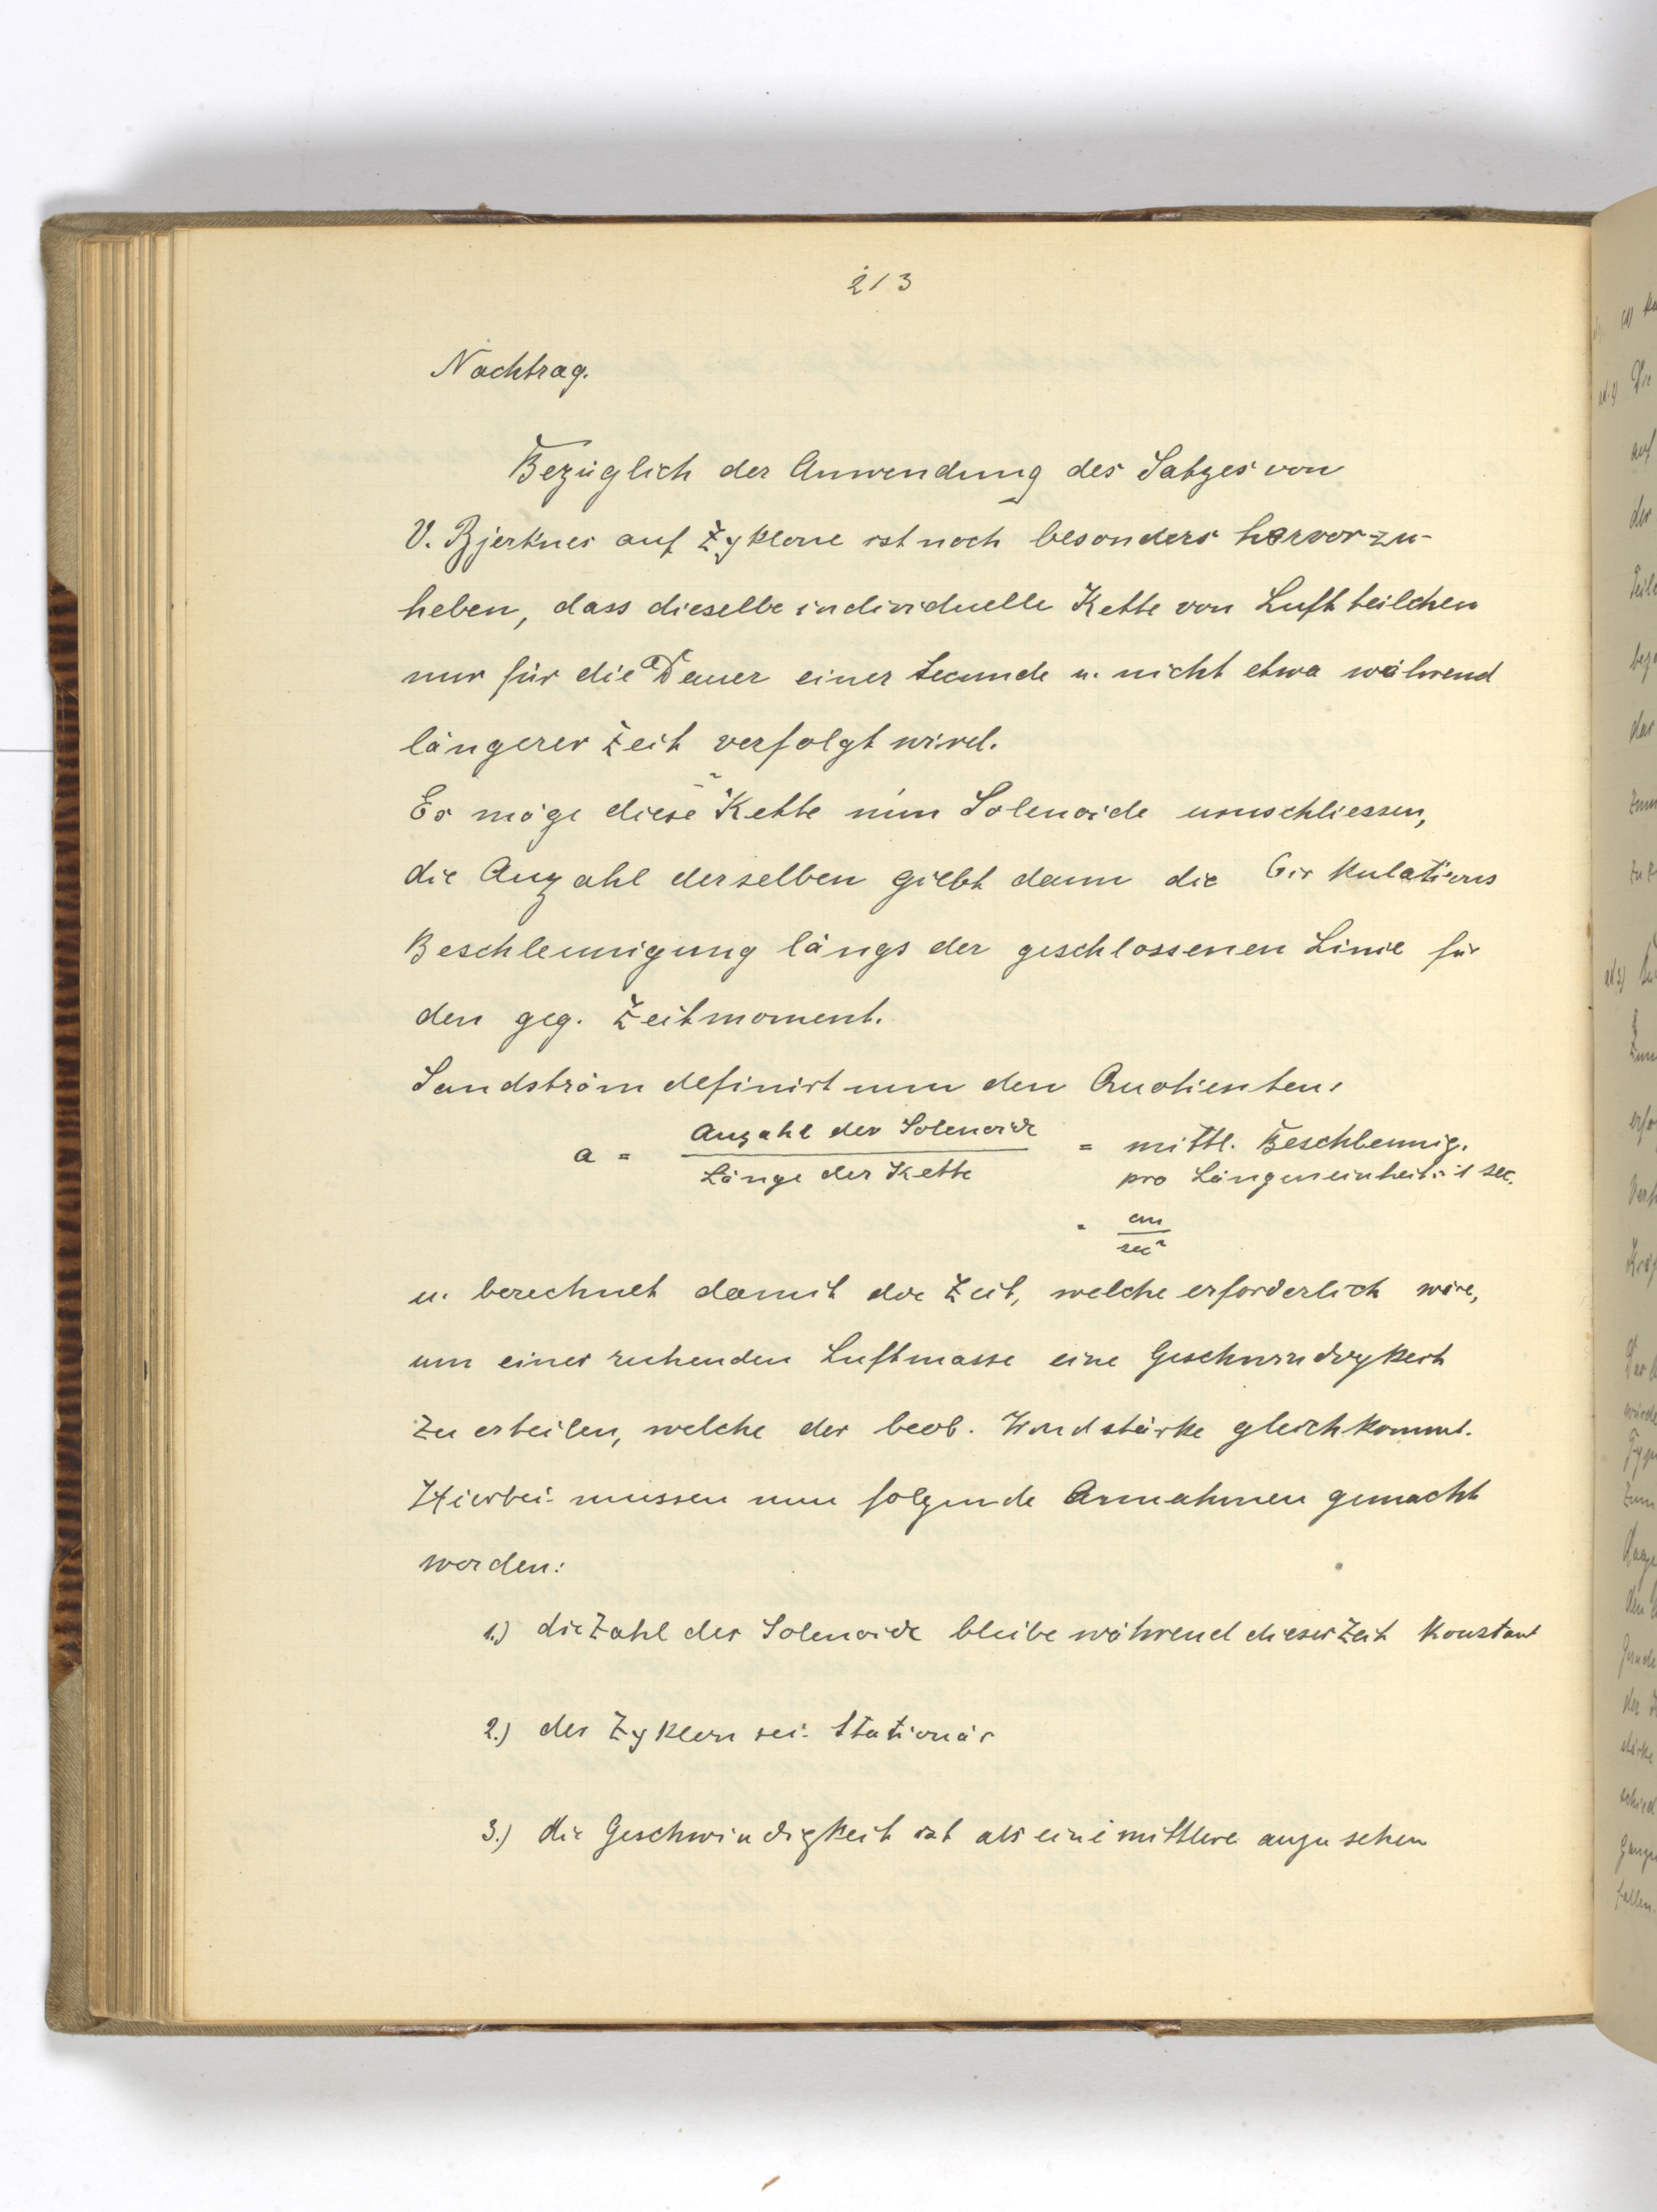 213
Nachtrag.
Bezüglich der Anwendung des Satzes von
V. Bjerknes auf Zyklone ist noch besonders hervorzu-
heben, dass dieselbe individuelle Kette von Luftteilchen
nur für die Dauer einer Secunde u. nicht etwa während
längerer Zeit verfolgt wird.
Es möge diese Kette nun Solenoide umschliessen,
die Anzahl derselben giebt dann die Cirkulations
Beschleunigung längs der geschlossenen Linie für
den geg. Zeitmoment.
Sandström definirt nun den Quotienten:
a = Anzahl der Solenoide / Länge der Kette = mittl. Beschleunig.
pro Längeneinheit: 1 sec.
= cm / sec²
u. berechnet damit die Zeit, welche erforderlich wäre,
um einer ruhenden Luftmasse eine Geschwindigkeit
zu erteilen, welche der beob. Windstärke gleichkommt.
Hierbei müssen nun folgende Annahmen gemacht
werden:
1.) die Zahl der Solenoide bleibe während dieser Zeit konstant
2.) der Zyklon sei stationär
3.) die Geschwindigkeit ist als eine mittlere anzusehen